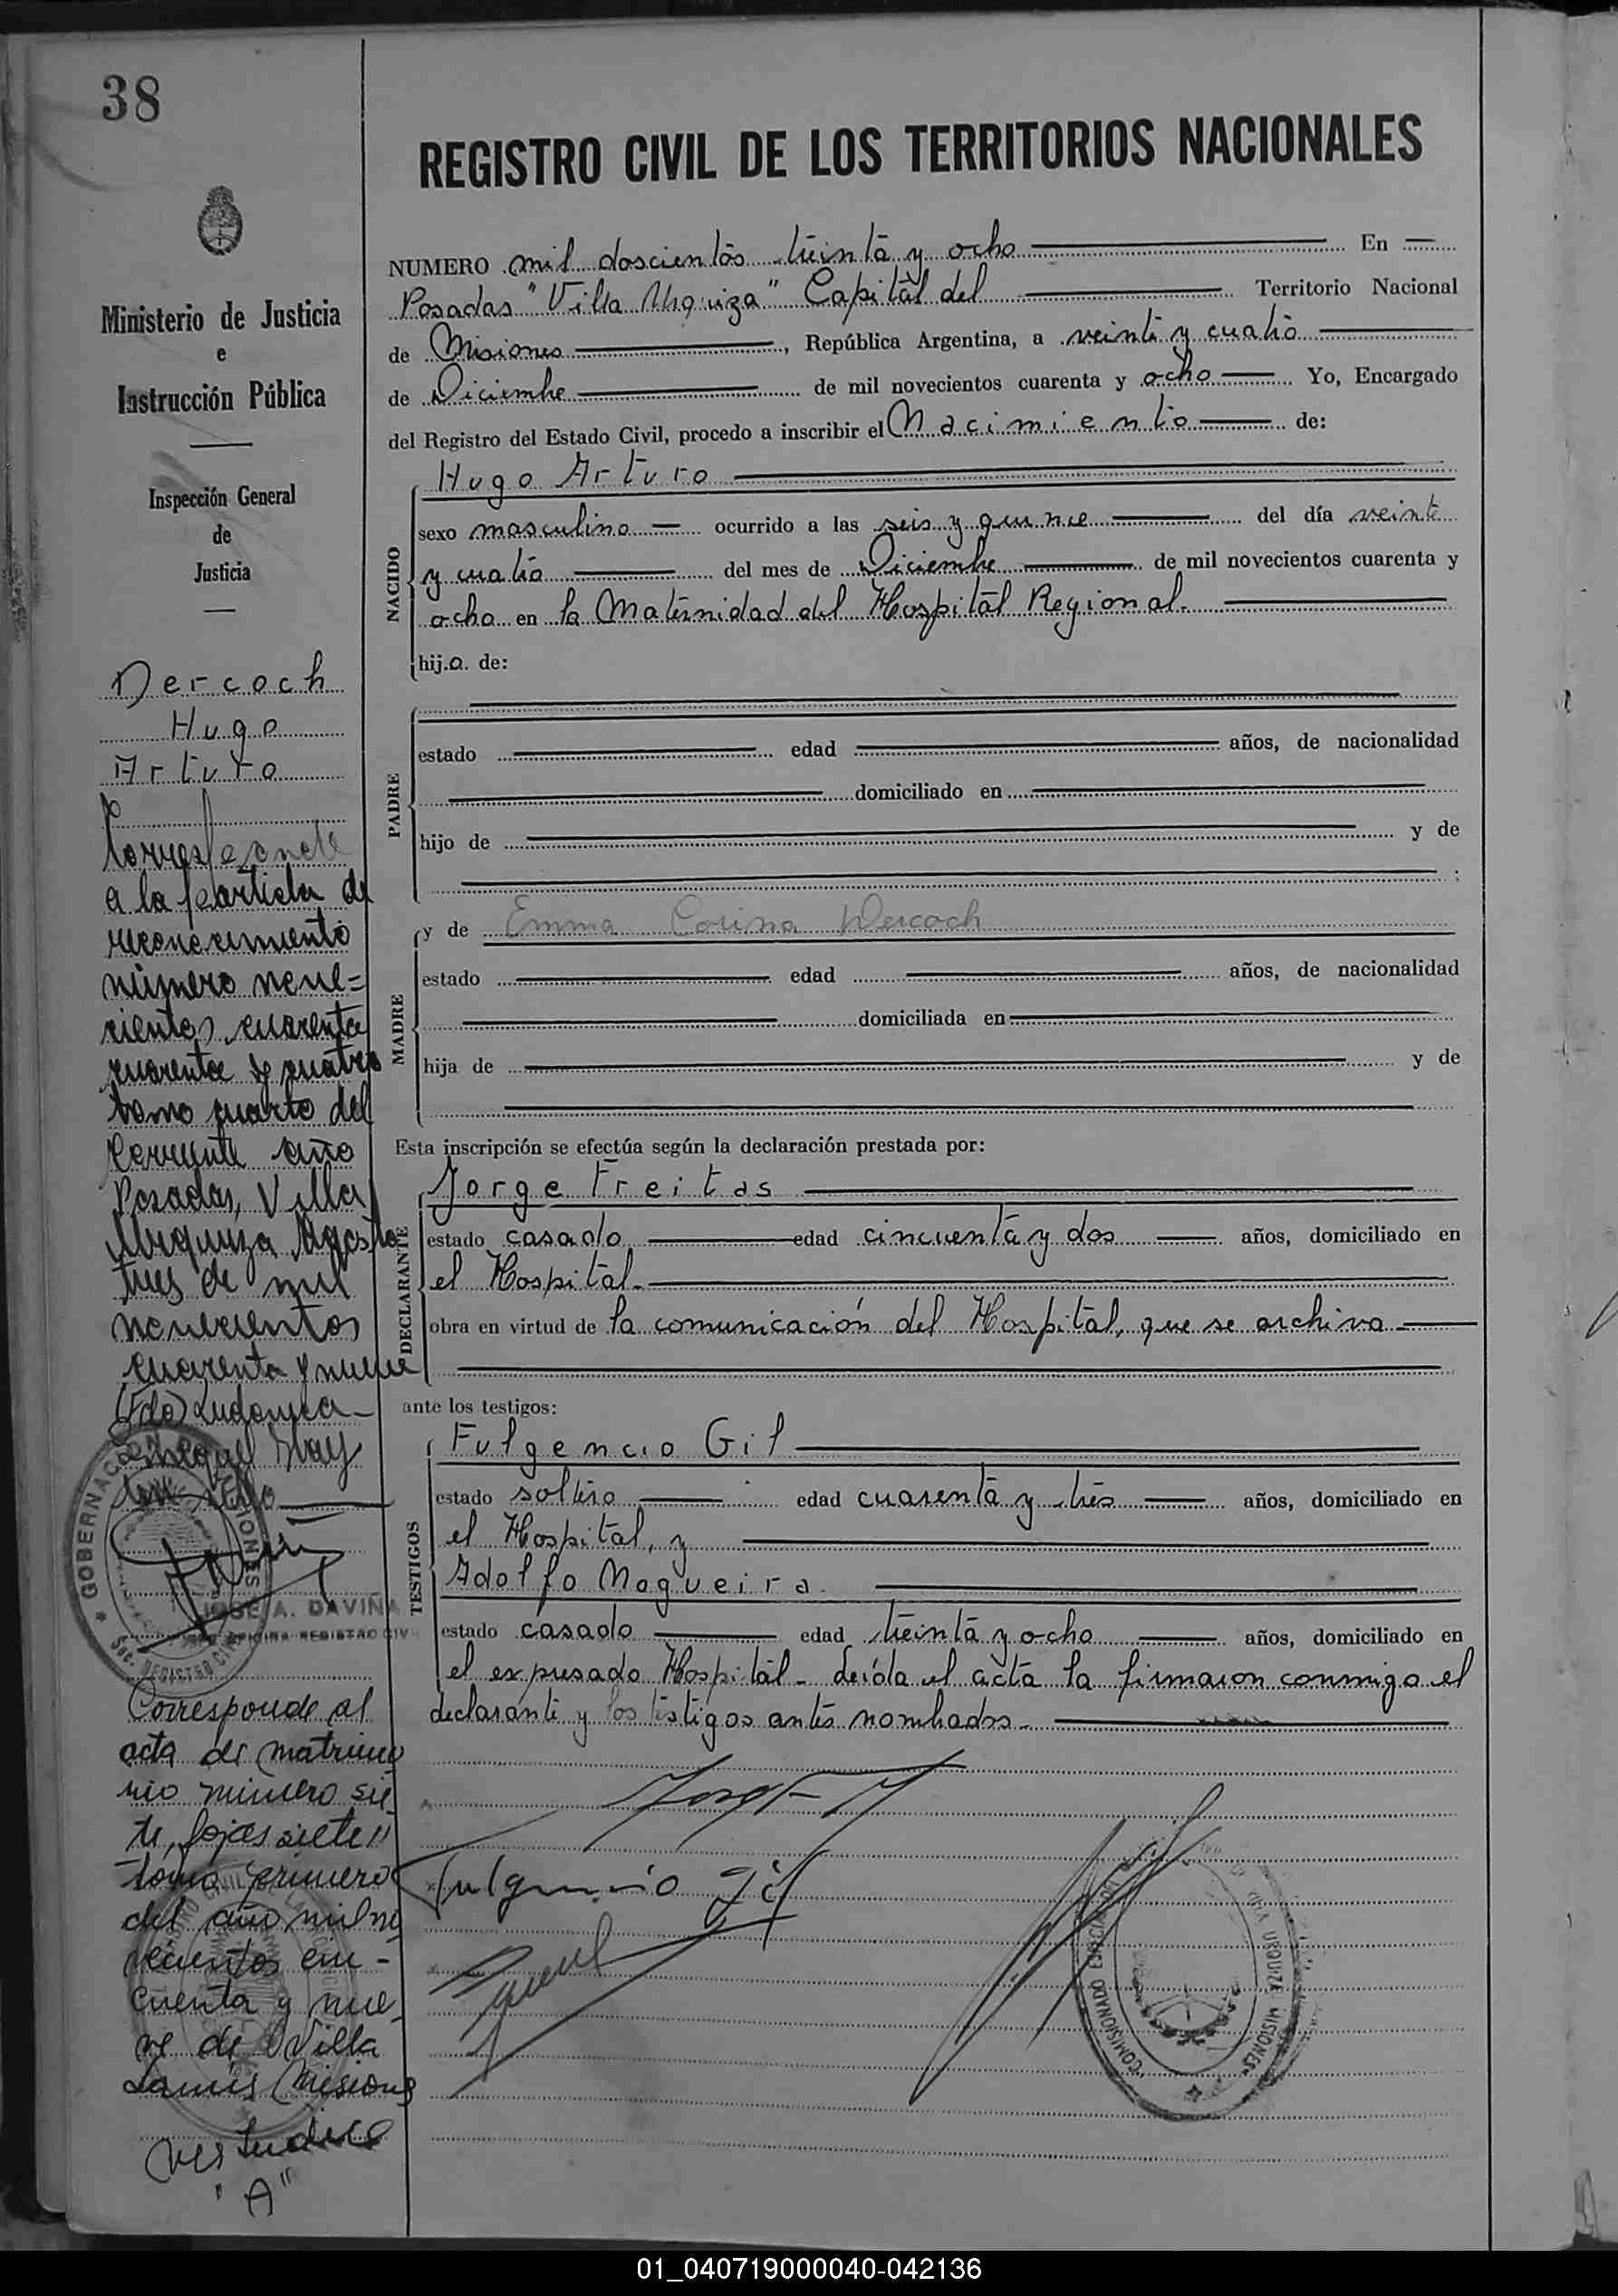 38
REGISTRO CIVIL DE LOS TERRITORIOS NACIONALES
Ministerio de Justicia
e
Instrucción Pública
Inspección General
de
Justicia
NUMERO mil doscientos treinta y ocho En
Posadas "Villa Urquiza" Capital del Territorio Nacional
de Misiones, República Argentina, a veinte y cuatro
de Diciembre de mil novecientos cuarenta y ocho Yo, Encargado
del Registro del Estado Civil, procedo a inscribir el Nacimiento de:
NACIDO
Hugo Arturo
sexo masculino ocurrido a las seis y quince del día veinte
y cuatro del mes de Diciembre de mil novecientos cuarenta y
ocho en la Maternidad del Hospital Regional.
hijo de:
PADRE
estado edad años, de nacionalidad
domiciliado en
hijo de y de
MADRE
y de Emma Corina Dercoch
estado edad años, de nacionalidad
domiciliada en
hija de y de
Esta inscripción se efectúa según la declaración prestada por:
DECLARANTE
Jorge Freitas
estado casado edad cincuenta y dos años, domiciliado en
el Hospital.
obra en virtud de la comunicación del Hospital, que se archiva
ante los testigos:
TESTIGOS
Fulgencio Gil
estado soltero edad cuarenta y tres años, domiciliado en
el Hospital, y
Adolfo Nogueira.
estado casado edad treinta y ocho años, domiciliado en
el expresado Hospital. Leída el acta la firmaron conmigo el
declarante y los testigos antes nombrados.
Fulgencio Gil
COMISIONADO URQUIZA MISIONES
Dercoch
Hugo
Arturo
Corresponde
a la partida de
reconocimiento
número nove=
cientos cuarenta
cuarenta y cuatro
tomo cuarto del
corriente año
Posadas, Villa
Urquiza Agosto
tres de mil
novecientos
cuarenta y nueve
(Fdo)
GOBERNAC MISIONES
JOSE A. DAVIÑA
OFICINA REGISTRO CIV
Sec. REGISTRO CIVIL
Corresponde al
acta de matrimo
nio número sie-
te, fojas siete
tomo primero
del año mil no
vecientos cin-
cuenta y nue
ve de Villa
Lanús (Misiones
ver Indice
"A"
01_040719000040-042136